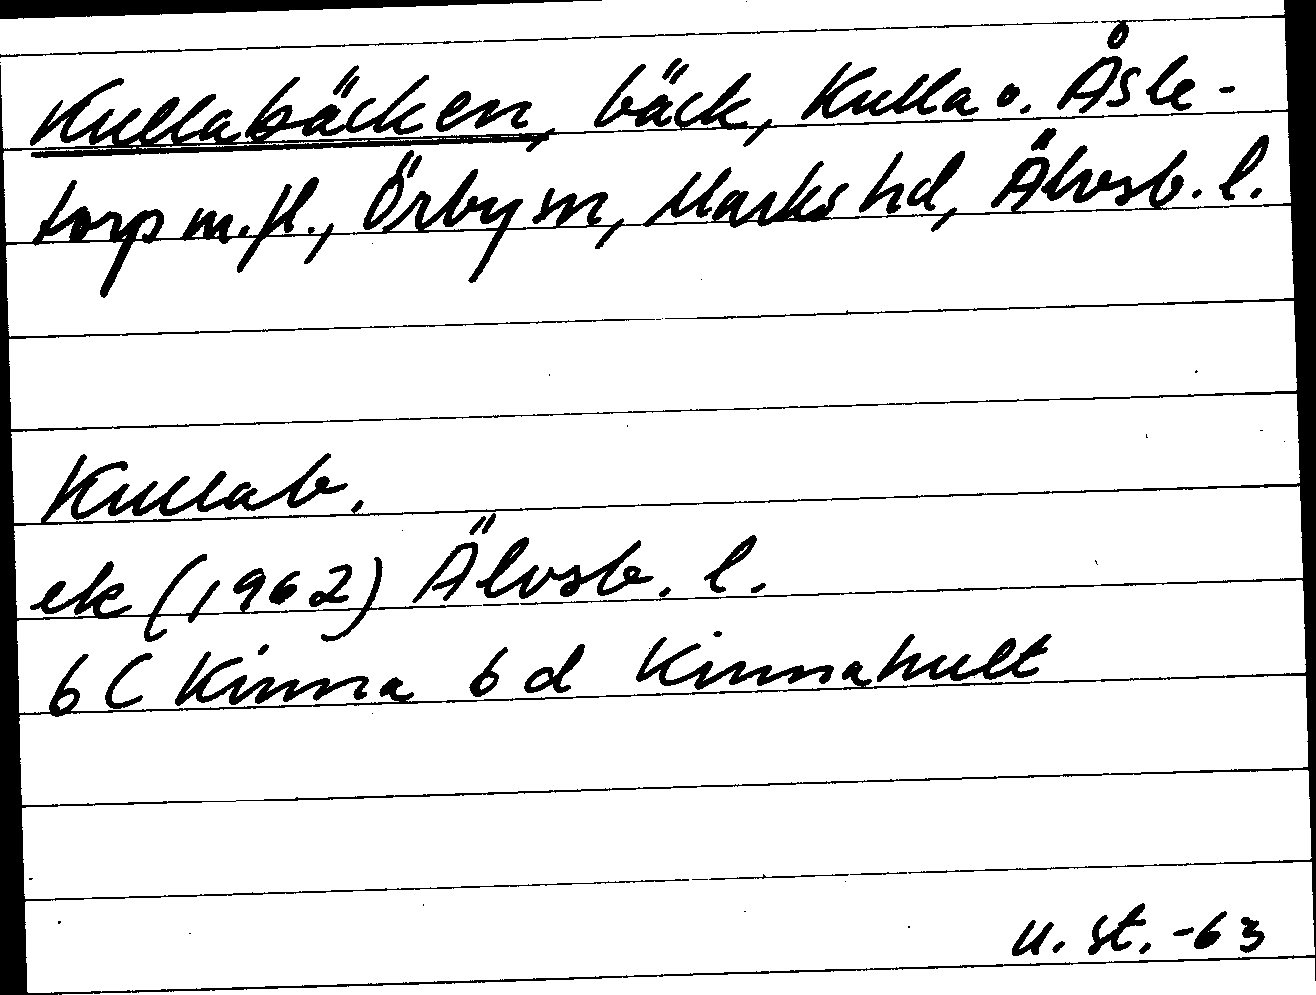 Kullabäcken, bäck, Kulla o. Åsle-
torp m.fl., Örby sn, Marks hd, Älvsb. l.
Kullab.
ek (1962) Älvsb. l.
6 C Kinna 6 d Kinnahult
u. st. -63